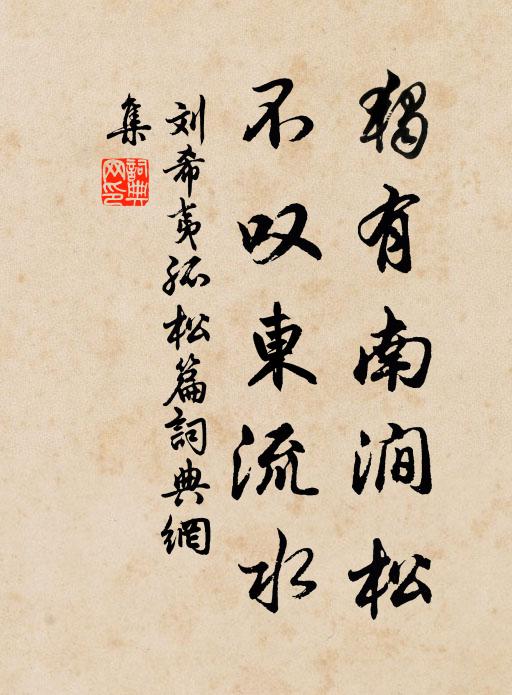 獨有南澗松
不叹東流水
刘希夷孤松篇詞典網
集
詞典
网印